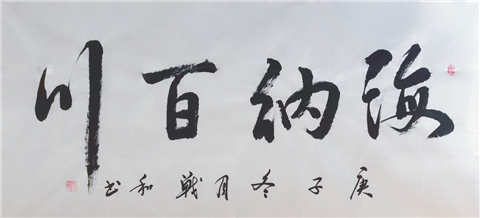 海纳百川
庚子冬月戰和书